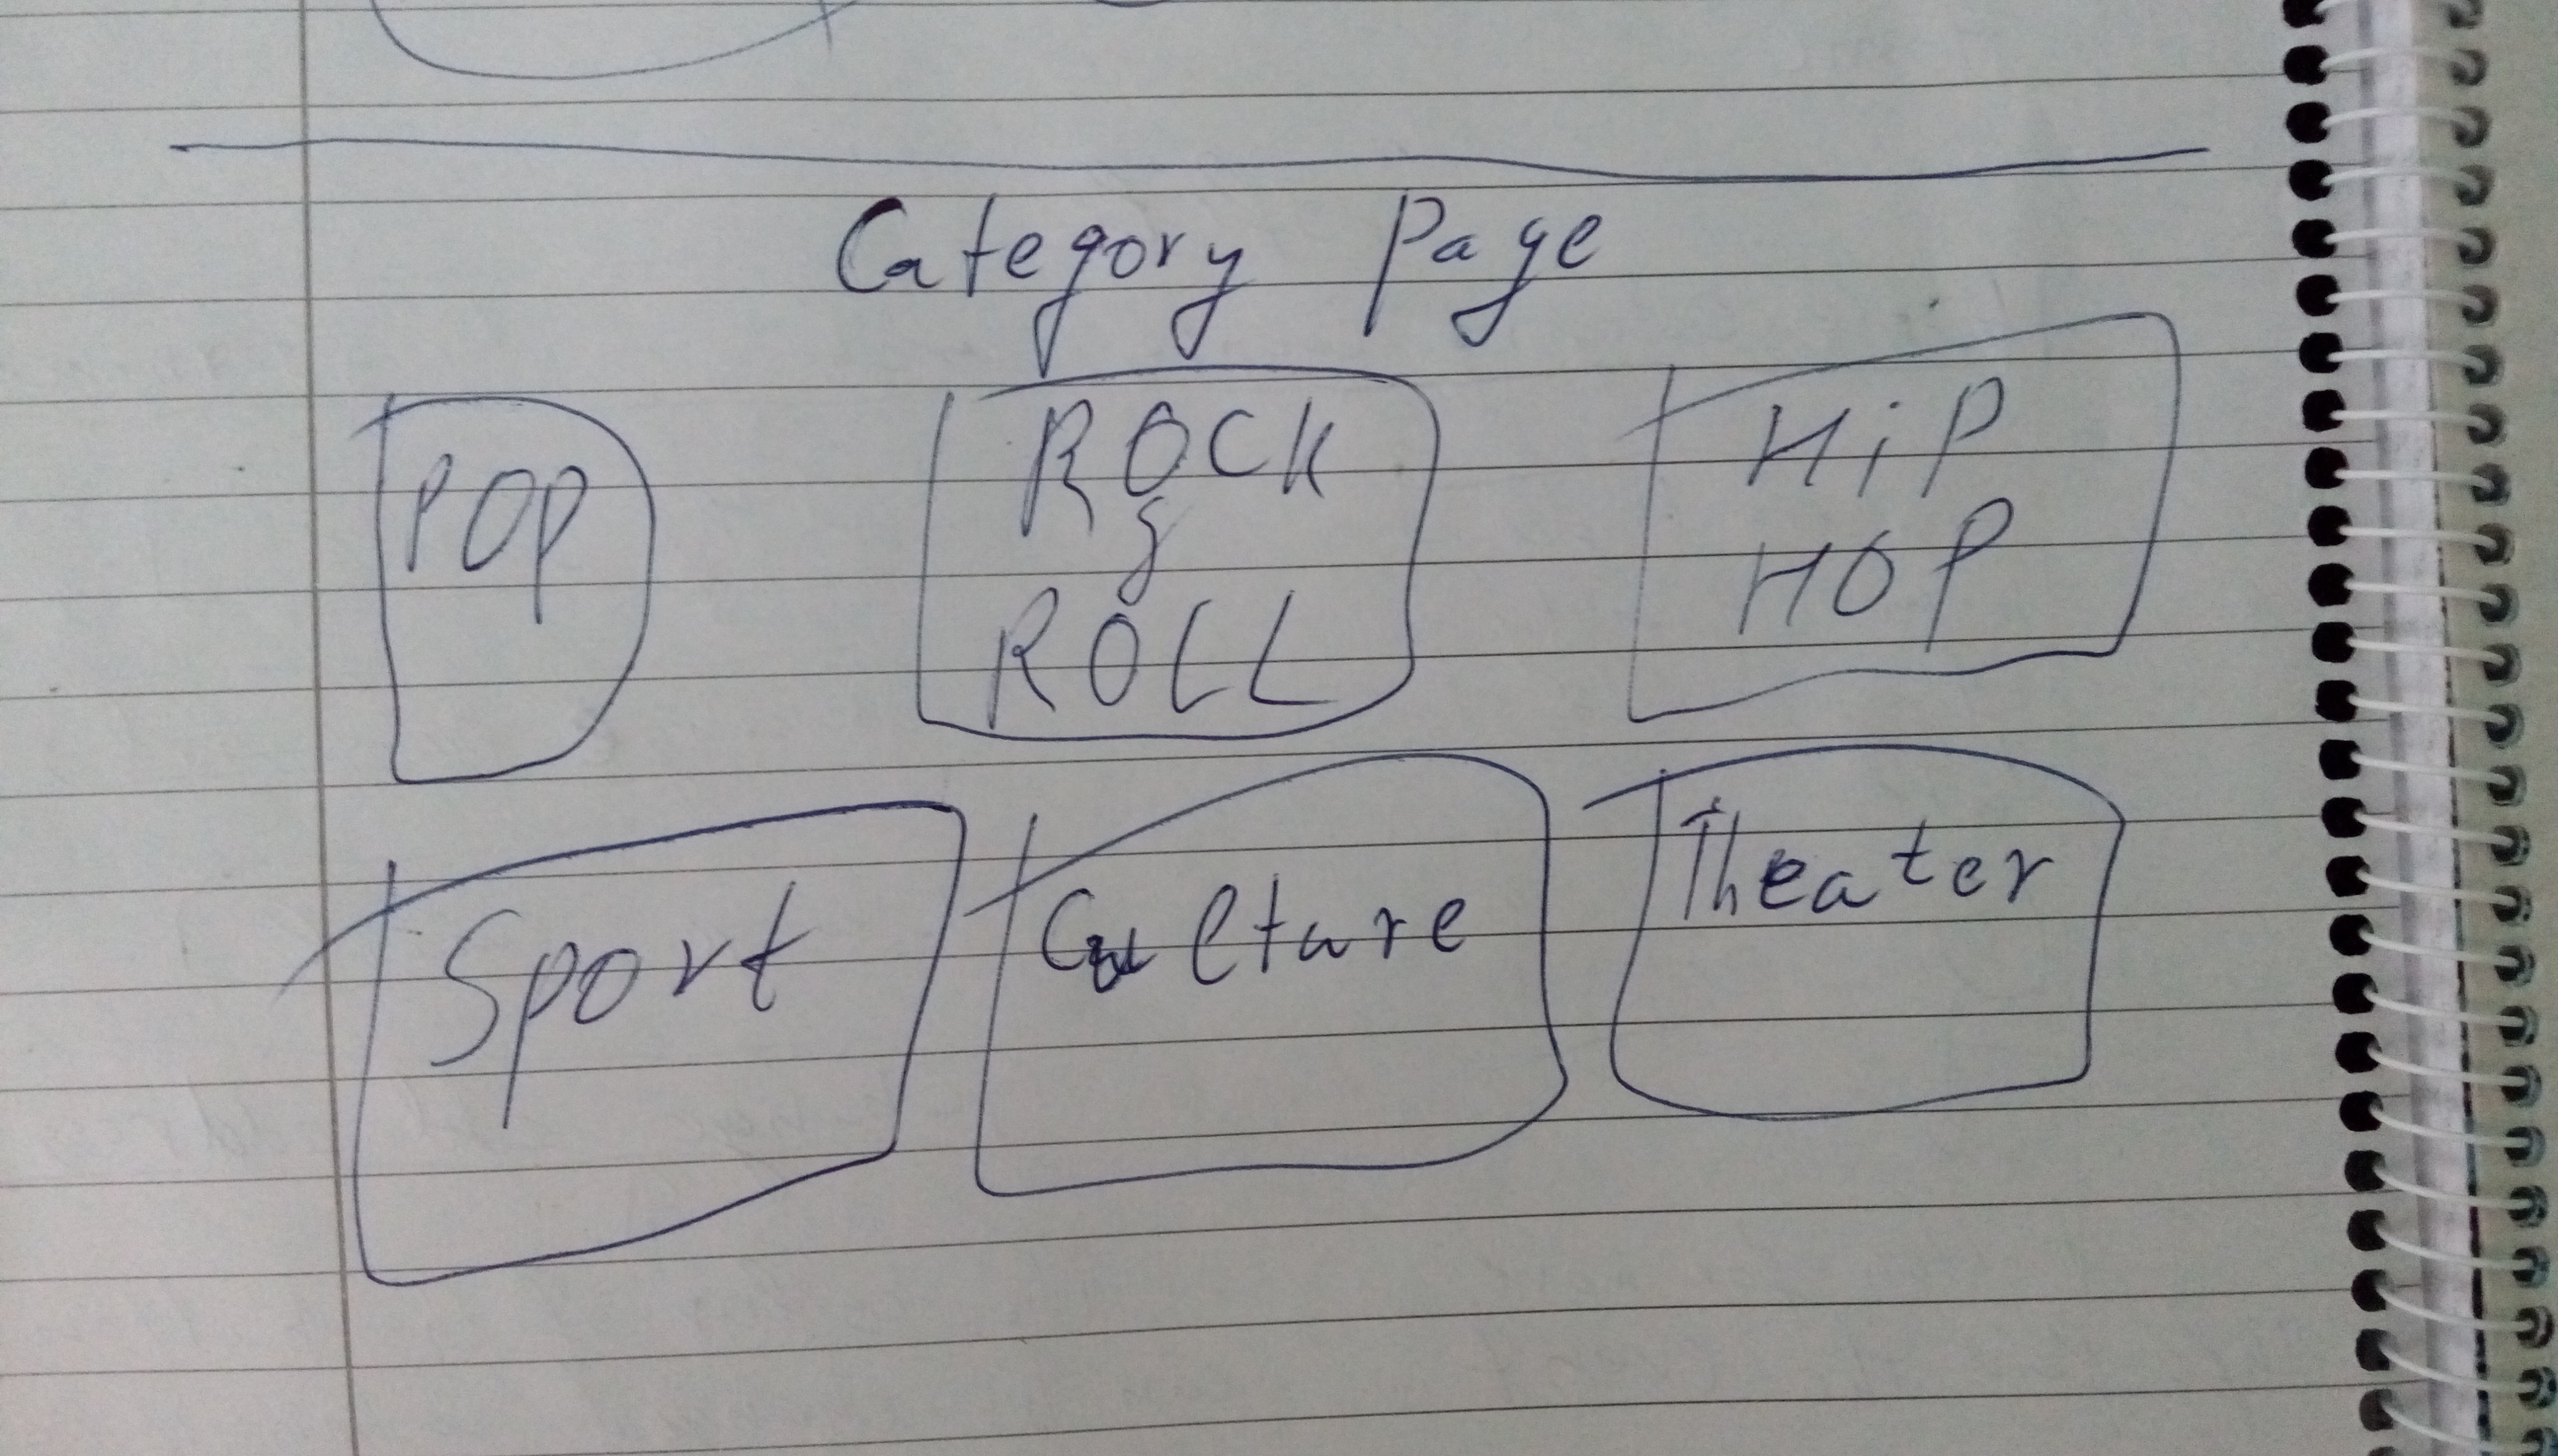 Category Page
POP
ROCK
&
ROLL
HiP
HOP
Sport
Culture
Theater